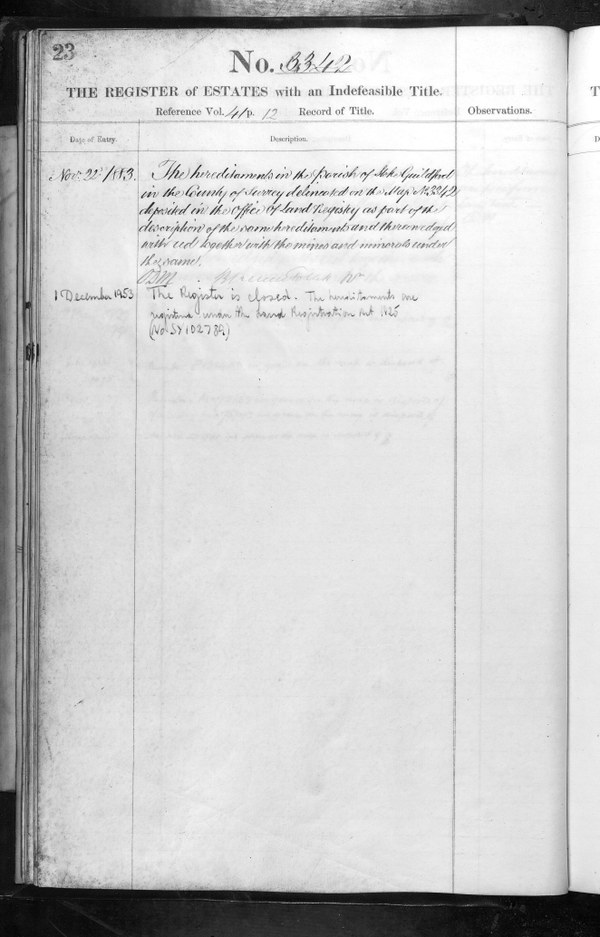 23
No. 3342
THE REGISTER of ESTATES with an Indefeasible Title.
Reference Vol. 41 p. 12 Record of Title.
Observations.
Date of Entry.
Description.
Novr. 22d 1883.
The hereditaments in the parish of Stoke Guildford
in the County of Surrey delineated on the Map No. 3342
deposited in the Office of Land Registry as part of the
description of the same hereditaments and thereon edged
with red together with the mines and minerals under
the same.
1 December 1953
The Register is closed. The hereditaments are
registered under the Land Registration Act 1925
(No. SY 102789)
T
D